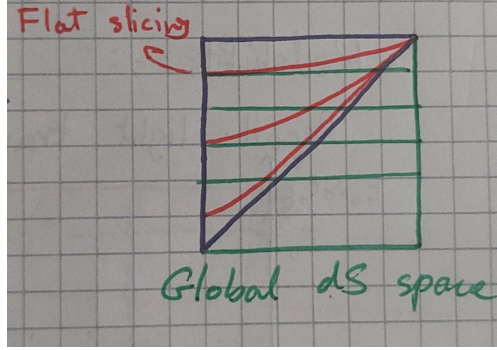 Flat slicing
Global dS space